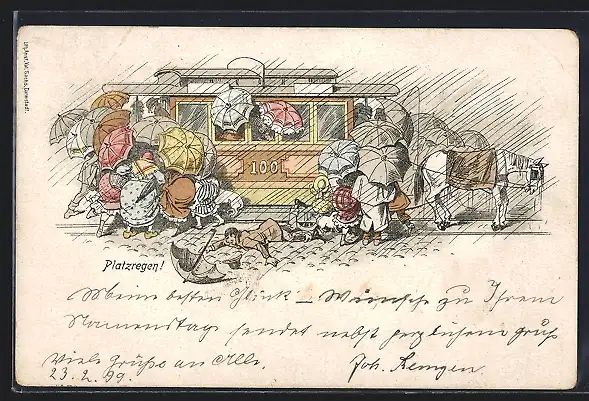 Lith. Anst. Val. Santes, Darmstadt.
100
Platzregen!
Meine besten Glück – Wünsche zu Ihrem
Namenstag sendet nebst herzlichem Gruß
Viele Grüße an Alle.
Joh. Remgen
23.2.99.